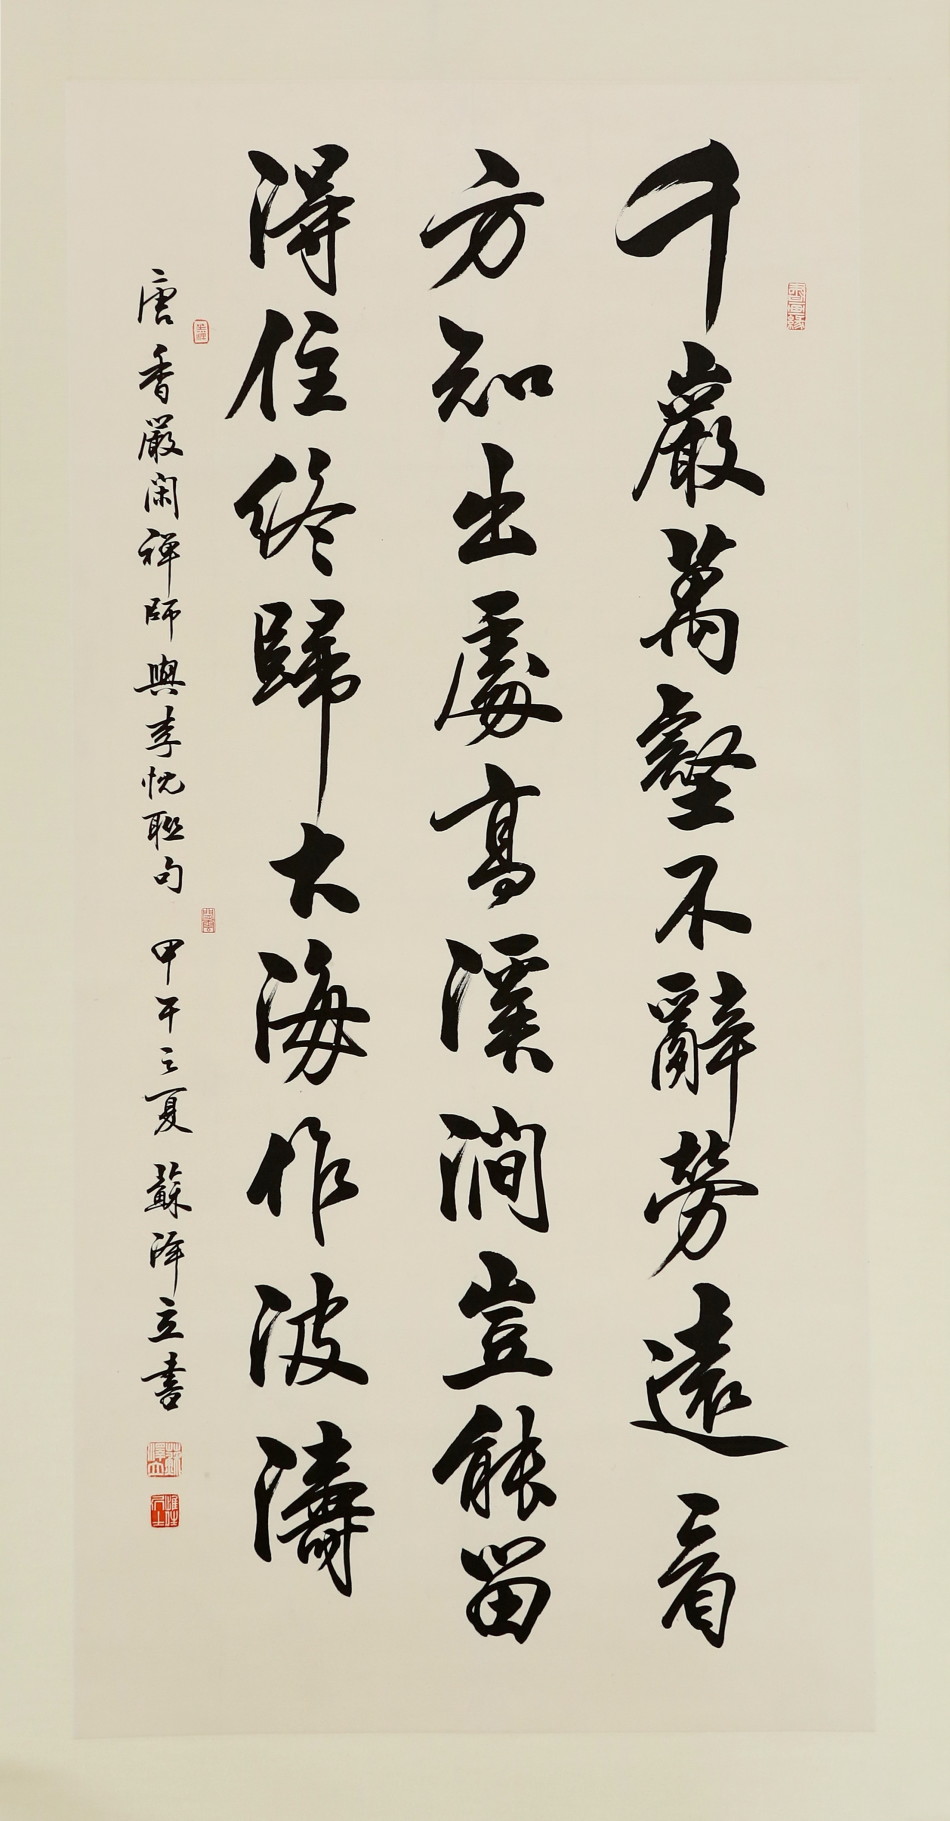 千巖萬壑不辭勞遠看
方知出處高溪澗豈能留
得住終歸大海作波濤
唐香嚴閑禪師與李忱聯句 甲午之夏 蘇澤立書